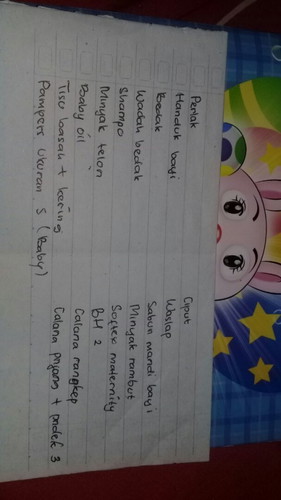 Perlak
Handuk bayi
Bedak
Wadah bedak
Shampo
Minyak telon
Baby oil
Tisu basah + kering
Pampers Ukuran S (Baby)
Ciput
Waslap
Sabun mandi bayi
Minyak rambut
Softex maternity
BH 2
Calana rangkep
Calana pnjang + pndek 3